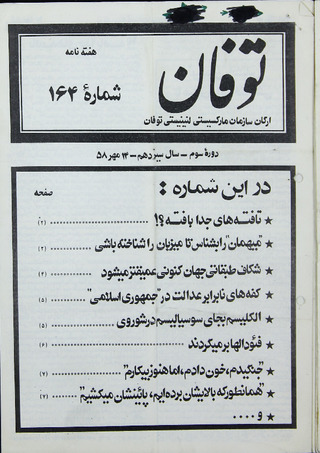 هفته نامه
توفان
شمارهٔ ۱۶۴
ارگان سازمان مارکسیستی لنینیستی توفان
دورهٔ سوم - سال سیزدهم - ۱۴ مهر ۵۸
در این شماره :
صفحه
★ تافته‌های جدا بافته؟! .......... (۲)
★ "میهمان" را بشناس تا میزبان را شناخته باشی .......... (۲)
★ شکاف طبقاتی جهان کنونی عمیقتر میشود .......... (۳)
★ کفه‌های نابرابر عدالت در "جمهوری اسلامی" .......... (۵)
★ الکلیسم بجای سوسیالیسم در شوروی .......... (۵)
★ فئودالها بر میگردند .......... (۶)
★ "جنگیدم، خون دادم، اما هنوز بیکارم" .......... (۷)
★ "همانطور که بالایشان برده‌ایم، پائینشان میکشیم" .......... (۷)
★ و ....